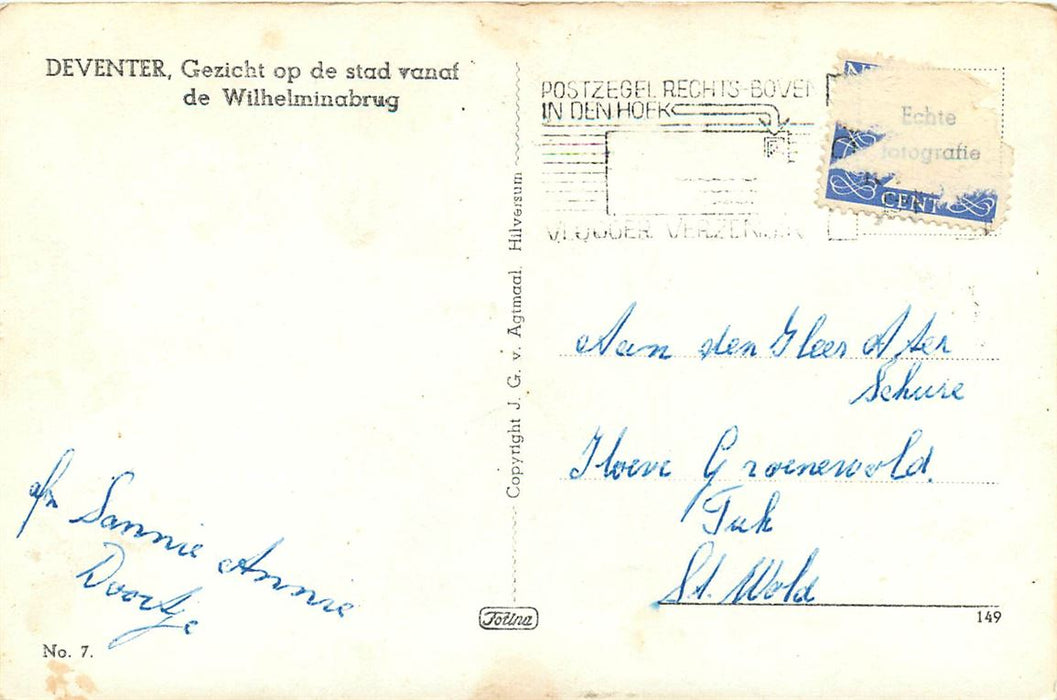 DEVENTER, Gezicht op de stad vanaf
de Wilhelminabrug
POSTZEGEL RECHTS-BOVEN
IN DEN HOEK
VLUGGER VERZENDEN
Echte
fotografie
CENT
Copyright J. G. v. Agtmaal. Hilversum
Aan den Heer A ter
Schure
Hoeve Groenewold.
Tuk
St. Wold
afz Sannie Annie
Doortje
Fotina
149
No. 7.